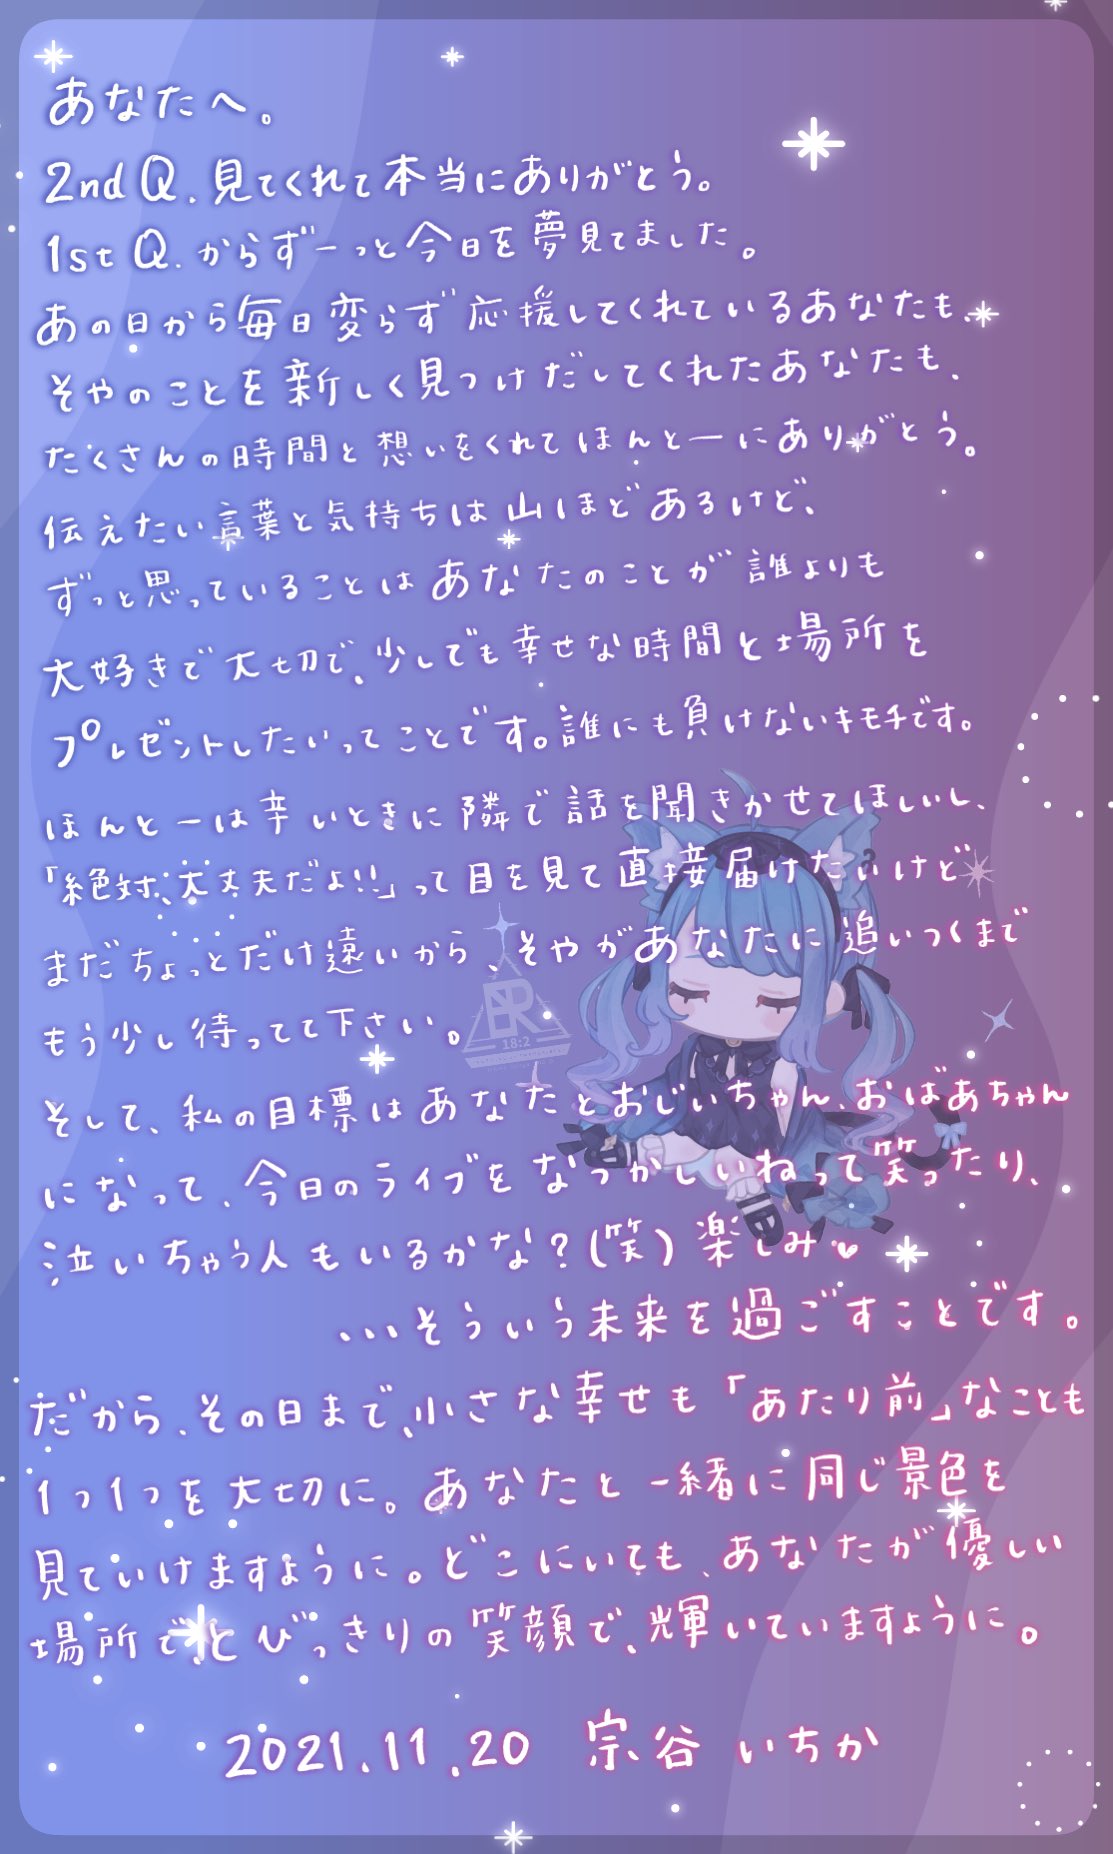 あなたへ。
2nd Q.見てくれて本当にありがとう。
1st Q.からずーっと今日を夢見てました。
あの日から毎日変らず応援してくれているあなたも、
そやのことを新しく見つけだしてくれたあなたも、
たくさんの時間と想いをくれてほんとーにありがとう。
伝えたい言葉と気持ちは山ほどあるけど、
ずっと思っていることはあなたのことが誰よりも
大好きで大切で、少しでも幸せな時間と場所を
プレゼントしたいってことです。誰にも負けないキモチです。
ほんとーは辛いときに隣で話を聞きかせてほしいし、
「絶対、大丈夫だよ!!」って目を見て直接届けたいけど
まだちょっとだけ遠いから、そやがあなたに追いつくまで
もう少し待ってて下さい。
ER
18:2
そして、私の目標はあなたとおじいちゃん、おばあちゃん
になって、今日のライブをなつかしいねって笑ったり、
泣いちゃう人もいるかな?(笑)楽しみ♥
...そういう未来を過ごすことです。
だから、その日まで、小さな幸せも「あたり前」なことも
1つ1つを大切に。あなたと一緒に同じ景色を
見ていけますように。どこにいても、あなたが優しい
場所で、とびっきりの笑顔で、輝いていますように。
2021.11.20 宗谷 いちか